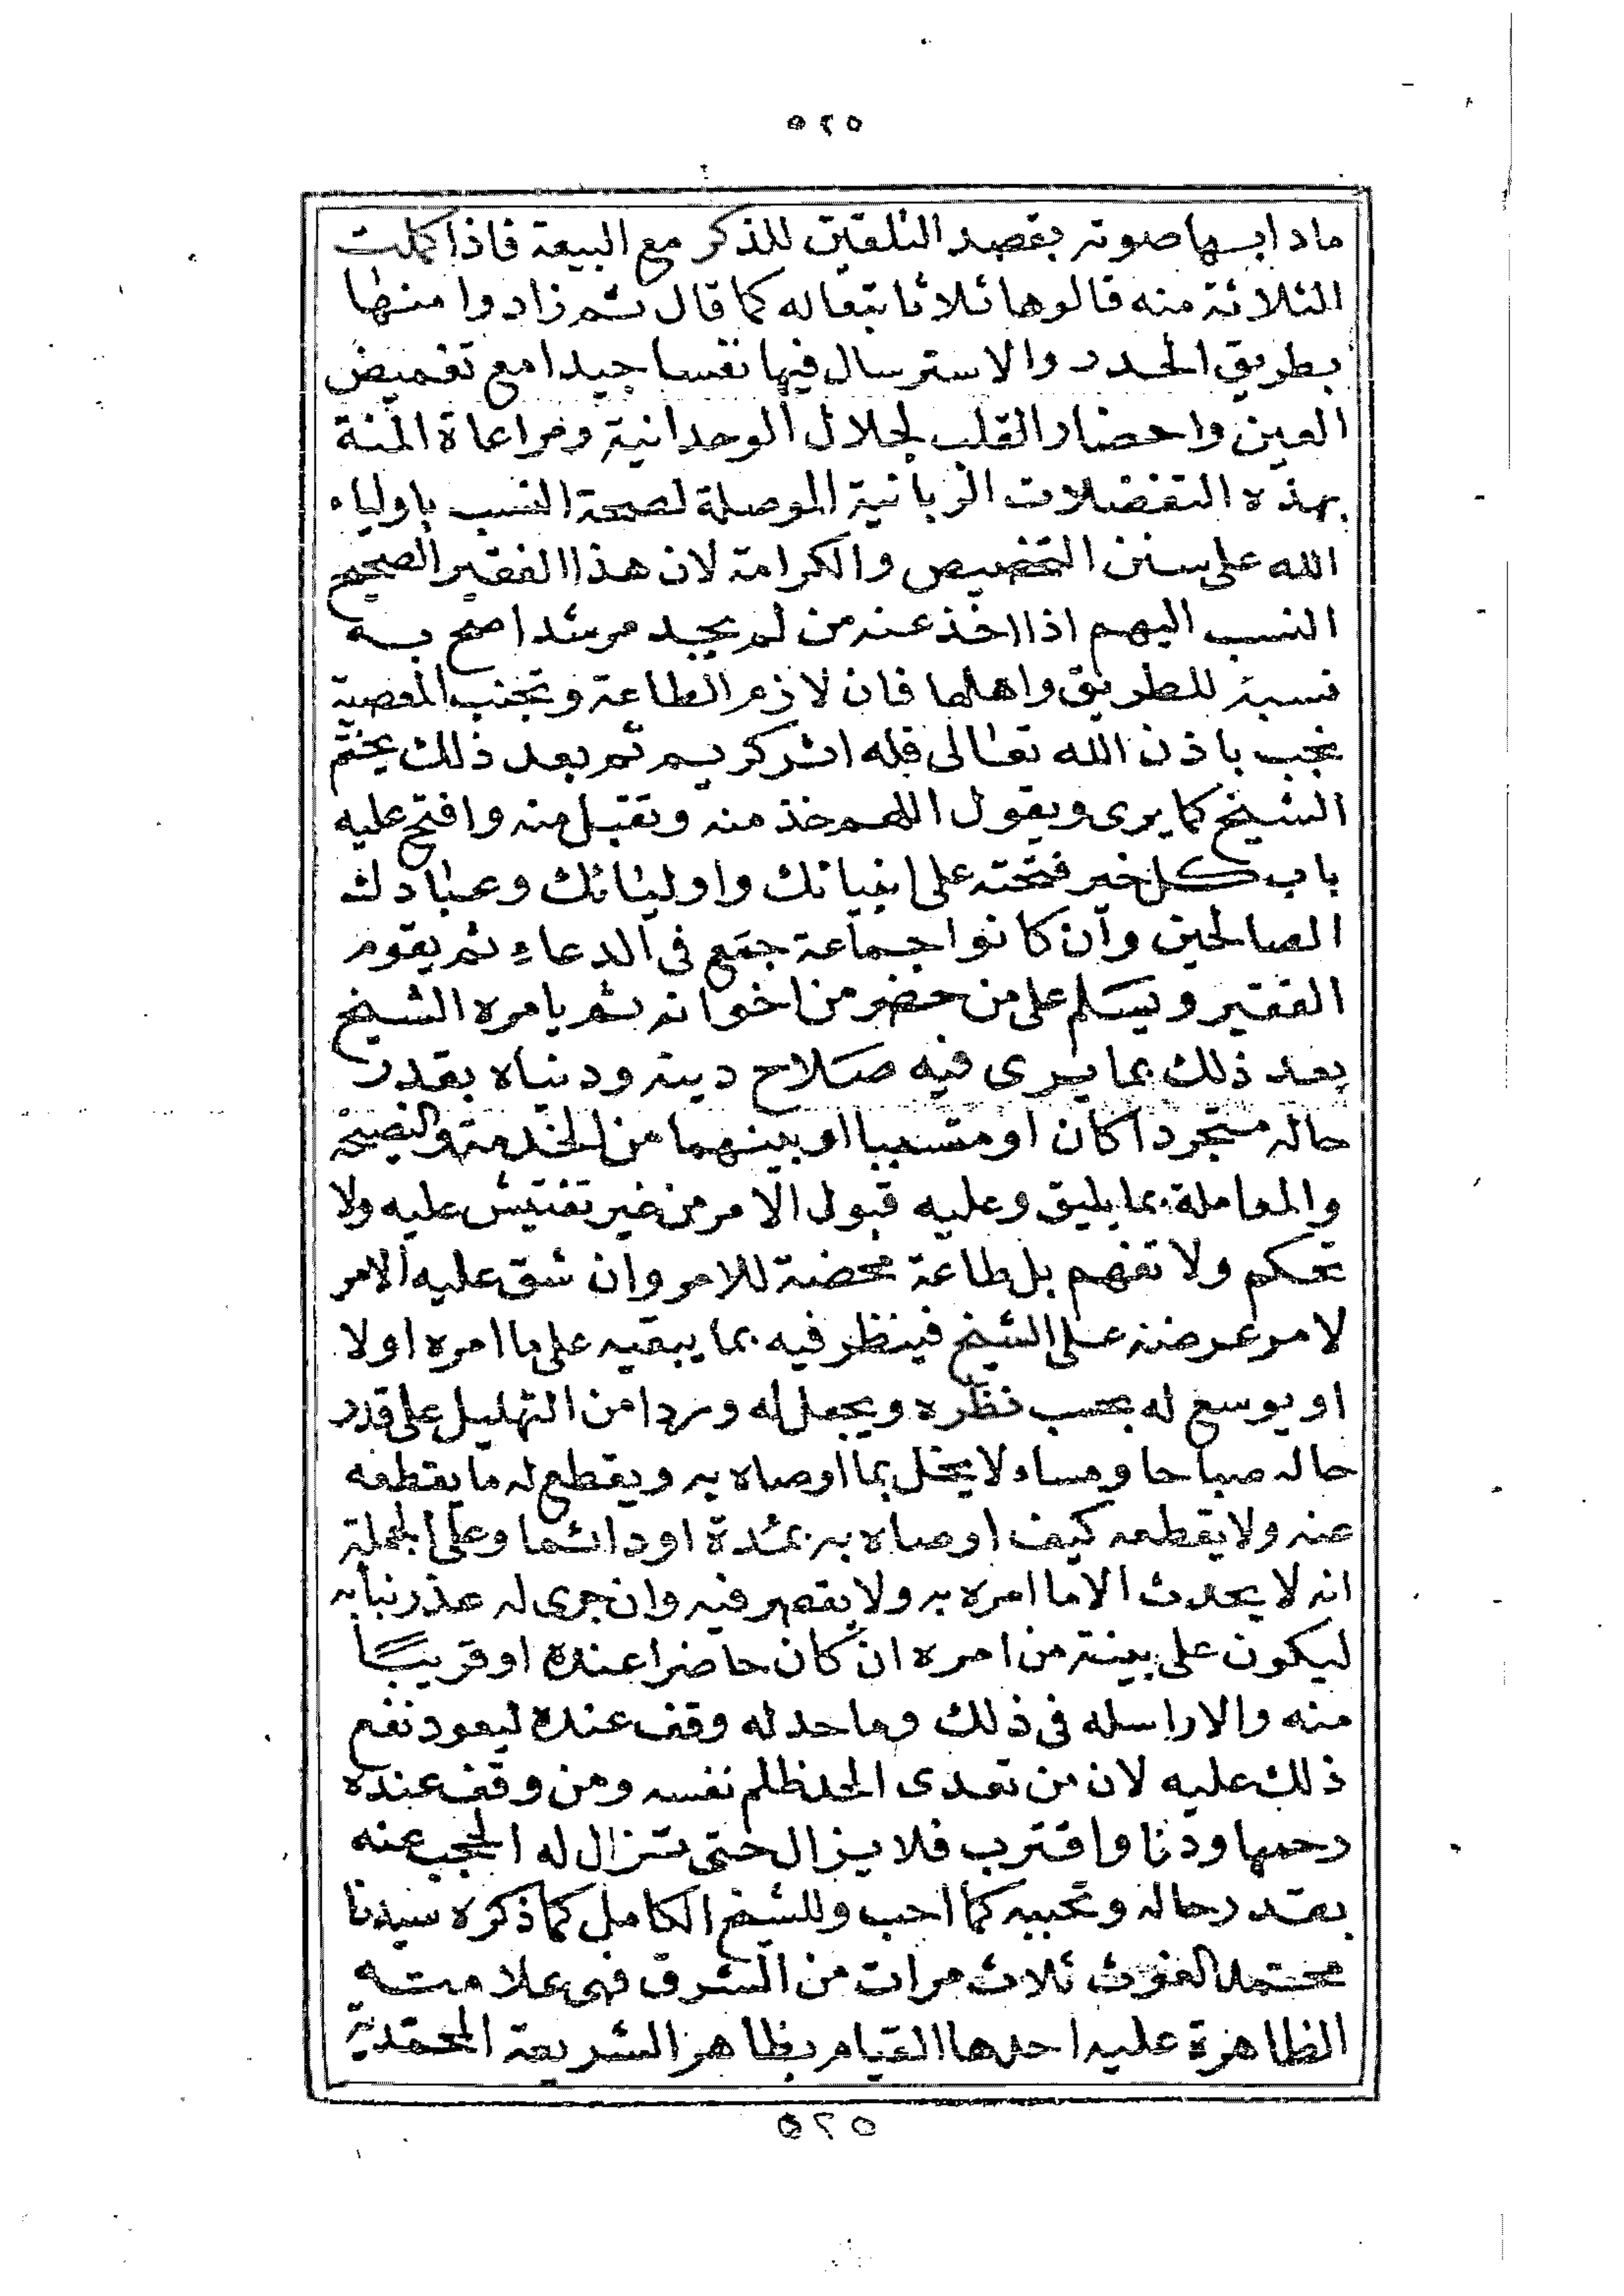 ٥٢٥
مادا بها صوته بقصد التلقين للذكر مع البيعة فاذا كملت
الثلاثة منه قالوها ثلاثا تبعا له كما قال ثم زادوا منها
بطريق الحدر والاسترسال فيها نفسا جيدا مع تغميض
العين واحضار القلب لجلال الوحدانية ومراعاة المنة
بهذه التفضلات الربانية الموصلة لصحة النسب باولياء
الله على سنن التخصيص والكرامة لان هذا الفقير الصحيح
النسب اليهم اذا اخذ عنه من لم يجد مرشدا صح به
نسبة للطريق واهلها فان لازم الطاعة وتجنب المعصية
نجب باذن الله تعالى فله اثر كريم ثم بعد ذلك يختم
الشيخ كما يرى ويقول اللهم خذ منه وتقبل منه وافتح عليه
باب كل خير فتحته على انبيائك واوليائك وعبادك
الصالحين وان كانوا جماعة جمع في الدعاء ثم يقوم
الفقير ويسلم على من حضر من اخوانه ثم يامره الشيخ
بعد ذلك بما يرى فيه صلاح دينه ودنياه بقدر
حاله متجردا كان او متسببا او بينهما من الخدمة والنصيحة
والمعاملة بما يليق وعليه قبول الامر من غير تفتيش عليه ولا
تحكم ولا تفهم بل طاعة محضة للامر وان شق عليه الامر
لامر عرضه على الشيخ فينظر فيه بما يبقيه على ما امره اولا
او يوسع له بحسب نظره ويجعل له وردا من التهليل على قدر
حاله صباحا ومساء لا يخل بما اوصاه به ويقطع له ما يقطعه
عنه ولا يقطعه كيف اوصاه به بمدة او دائما وعلى الجملة
انه لا يحدث الا ما امره به ولا يقصر فيه وان جرى له عذر نبأ به
ليكون على بينة من امره ان كان حاضرا عنده او قريبا
منه والا راسله في ذلك وما حد له وقف عنده ليعود نفع
ذلك عليه لان من تعدى الحد ظلم نفسه ومن وقف عنده
رحمها ودنا واقترب فلا يزال حتى تزال له الحجب عنه
بقدر حاله وتحبيه كما احب وللشيخ الكامل كما ذكره سيدنا
محمد الغوث ثلاث مرات من الشرف فهى علامته
الظاهرة عليه احدها القيام بظاهر الشريعة المحمدية
٥٢٥